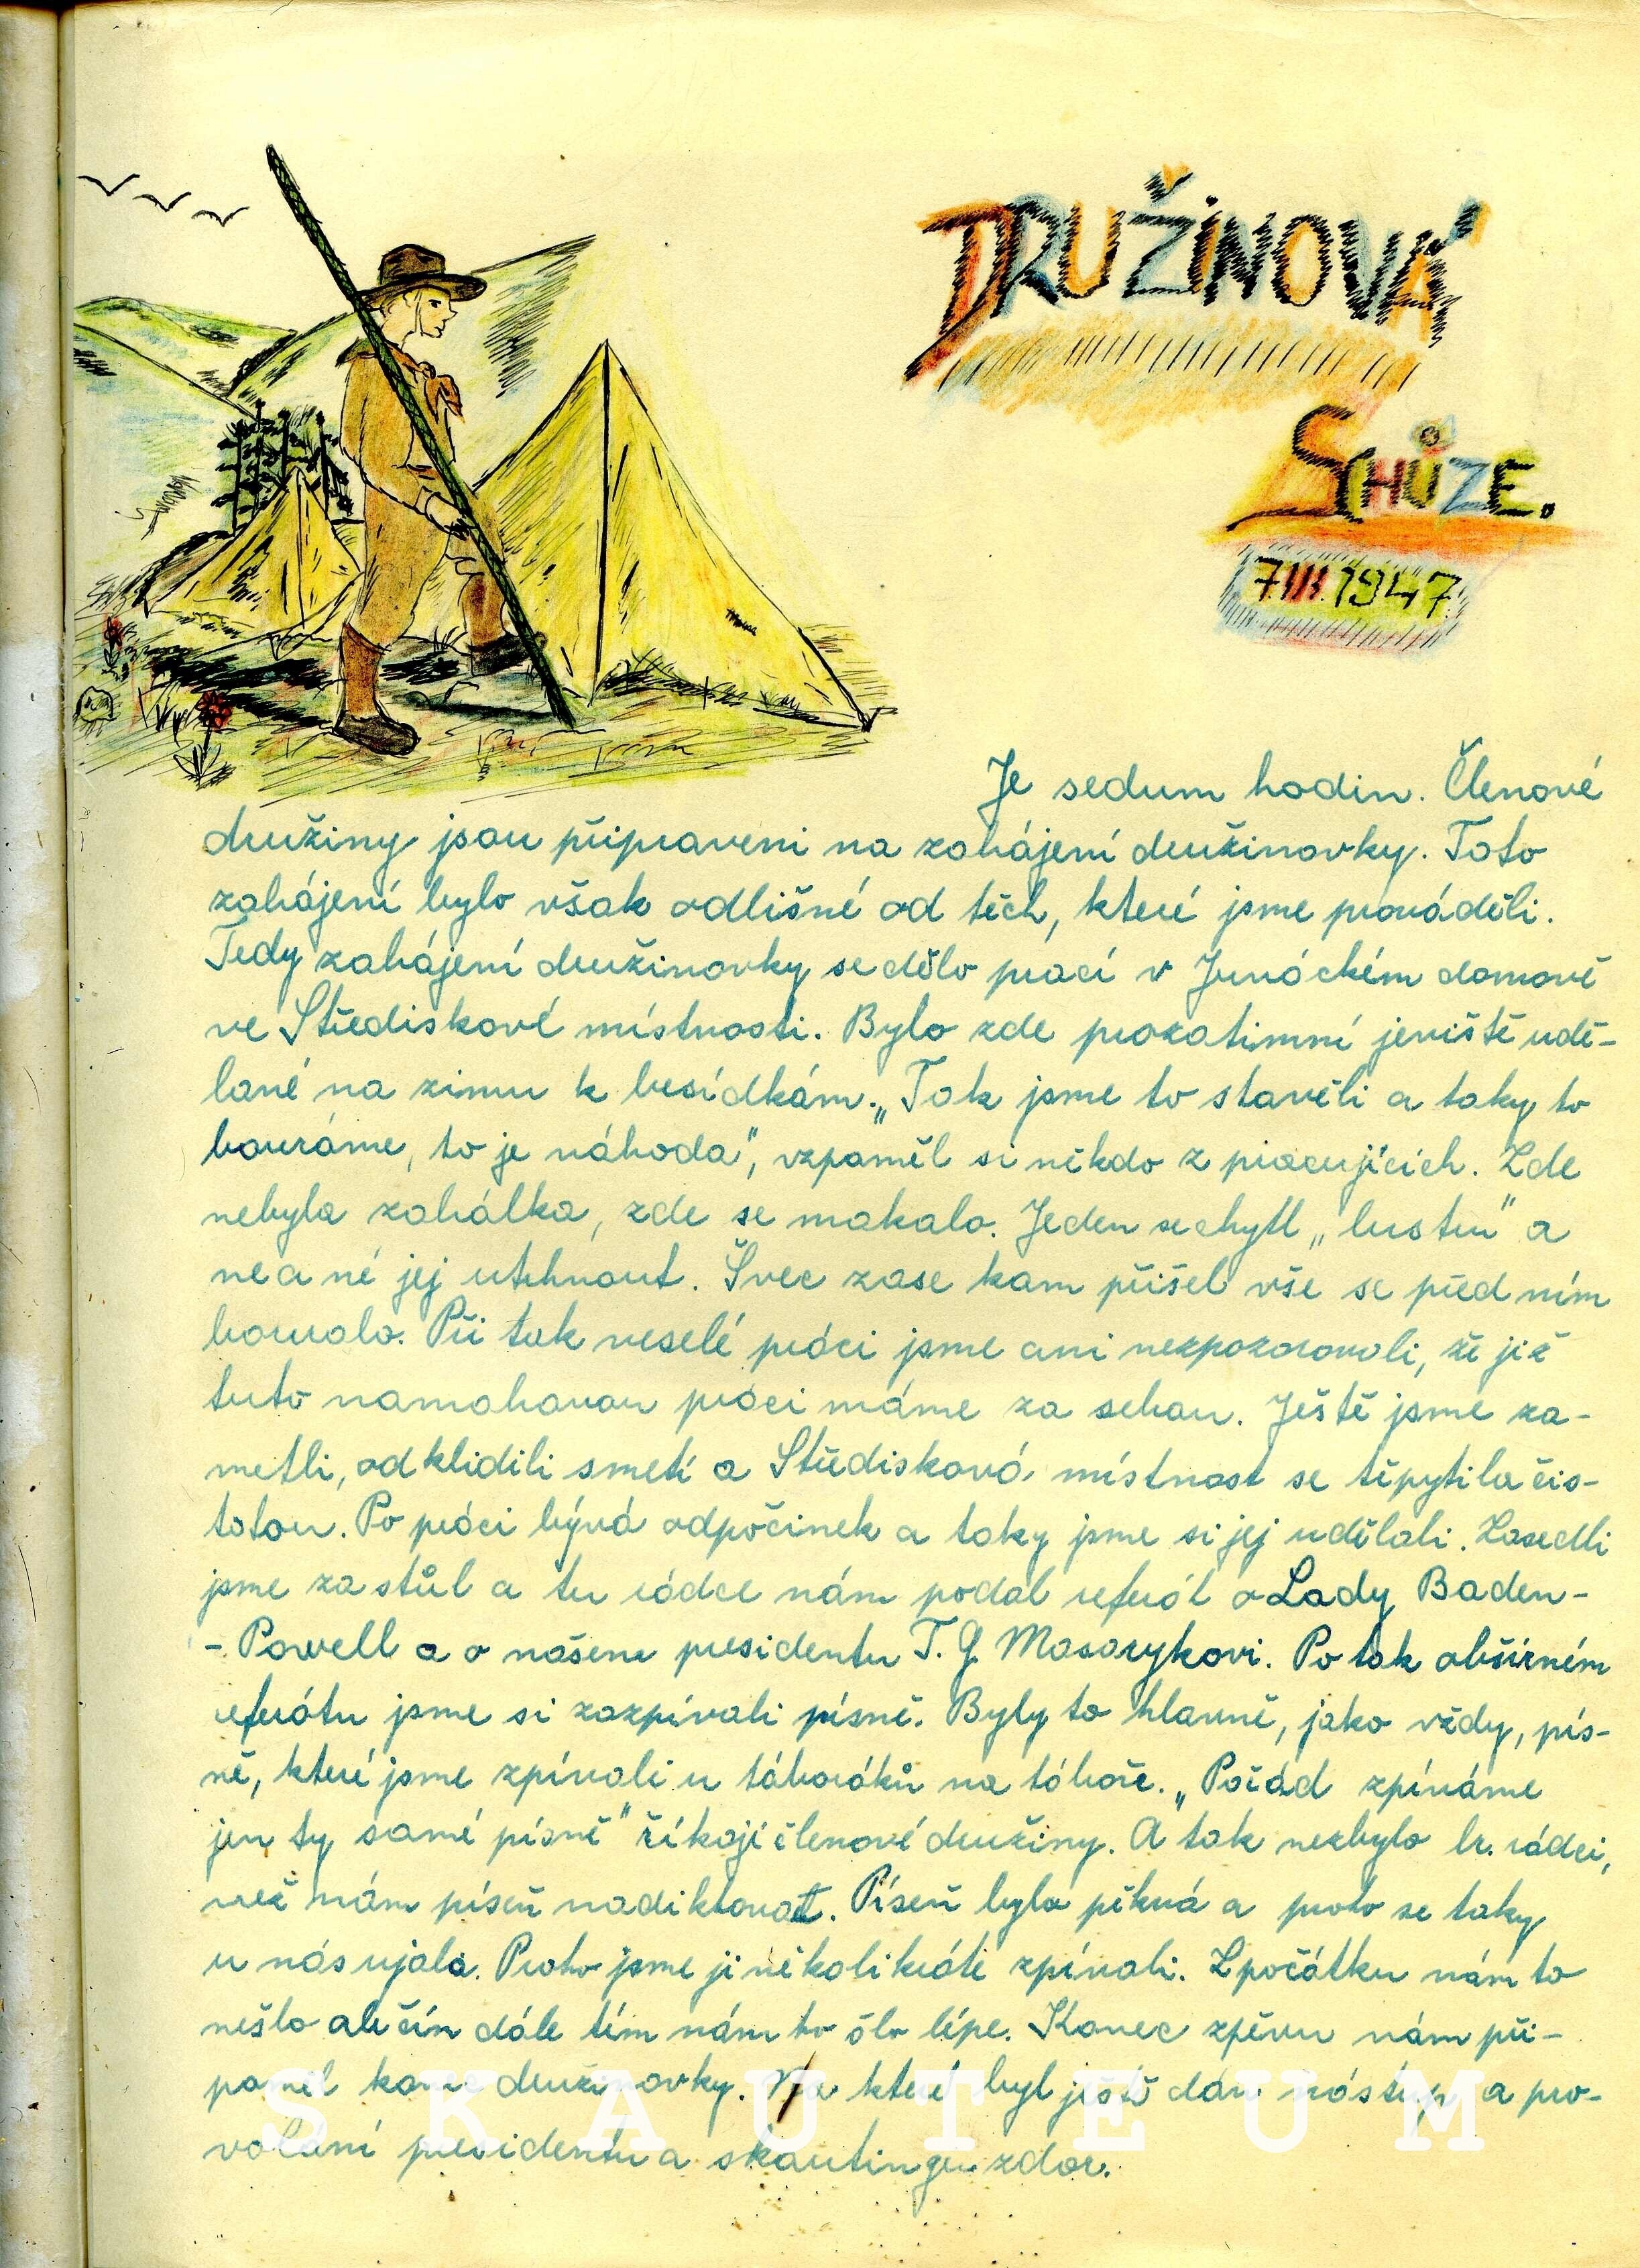 DRUŽINOVÁ
SCHŮZE.
7.III.1947.
Je sedum hodin. Členové
družiny jsou připraveni na zahájení družinovky. Toto
zahájení bylo však odlišné od těch, které jsme prováděli.
Tedy zahájení družinovky se dělo prací v Junáckém domově
ve Střediskové místnosti. Bylo zde prozatimní jeviště udě-
lané na zimu k besídkám. „Tak jsme to stavěli a taky to
bouráme, to je náhoda", vzpoměl si někdo z pracujících. Zde
nebyla zahálka, zde se makalo. Jeden se chytl „lustru" a
ne a né jej utrhnout. Švec zase kam přišel vše se před ním
bouralo. Při tak veselé práci jsme ani nezpozorovali, že již
tuto namahavou práci máme za sebou. Ještě jsme za-
metli, odklidili smetí a Středisková místnost se třpytila čis-
totou. Po práci bývá odpočinek a taky jsme si jej udělali. Zasedli
jsme za stůl a tu rádce nám podal referát o Lady Baden-
-Powell a o našem presidentu T. G. Masarykovi. Po tak obšírném
referátu jsme si zazpívali písně. Byly to hlavně, jako vždy, pís-
ně, které jsme zpívali u táboráků na táboře. „Pořád zpíváme
jen ty samé písně" říkají členové družiny. A tak nezbylo br. rádci,
než nám píseň nadiktovat. Píseň byla pěkná a proto se taky
u nás ujala. Proto jsme ji několikráte zpívali. Zpočátku nám to
nešlo ale čím dále tím nám to šlo lépe. Konec zpěvu nám při-
poměl konec družinovky. Na které byl ještě dán nástup a pro-
volání presidentu a skautingu zdar.
SKAUTEUM